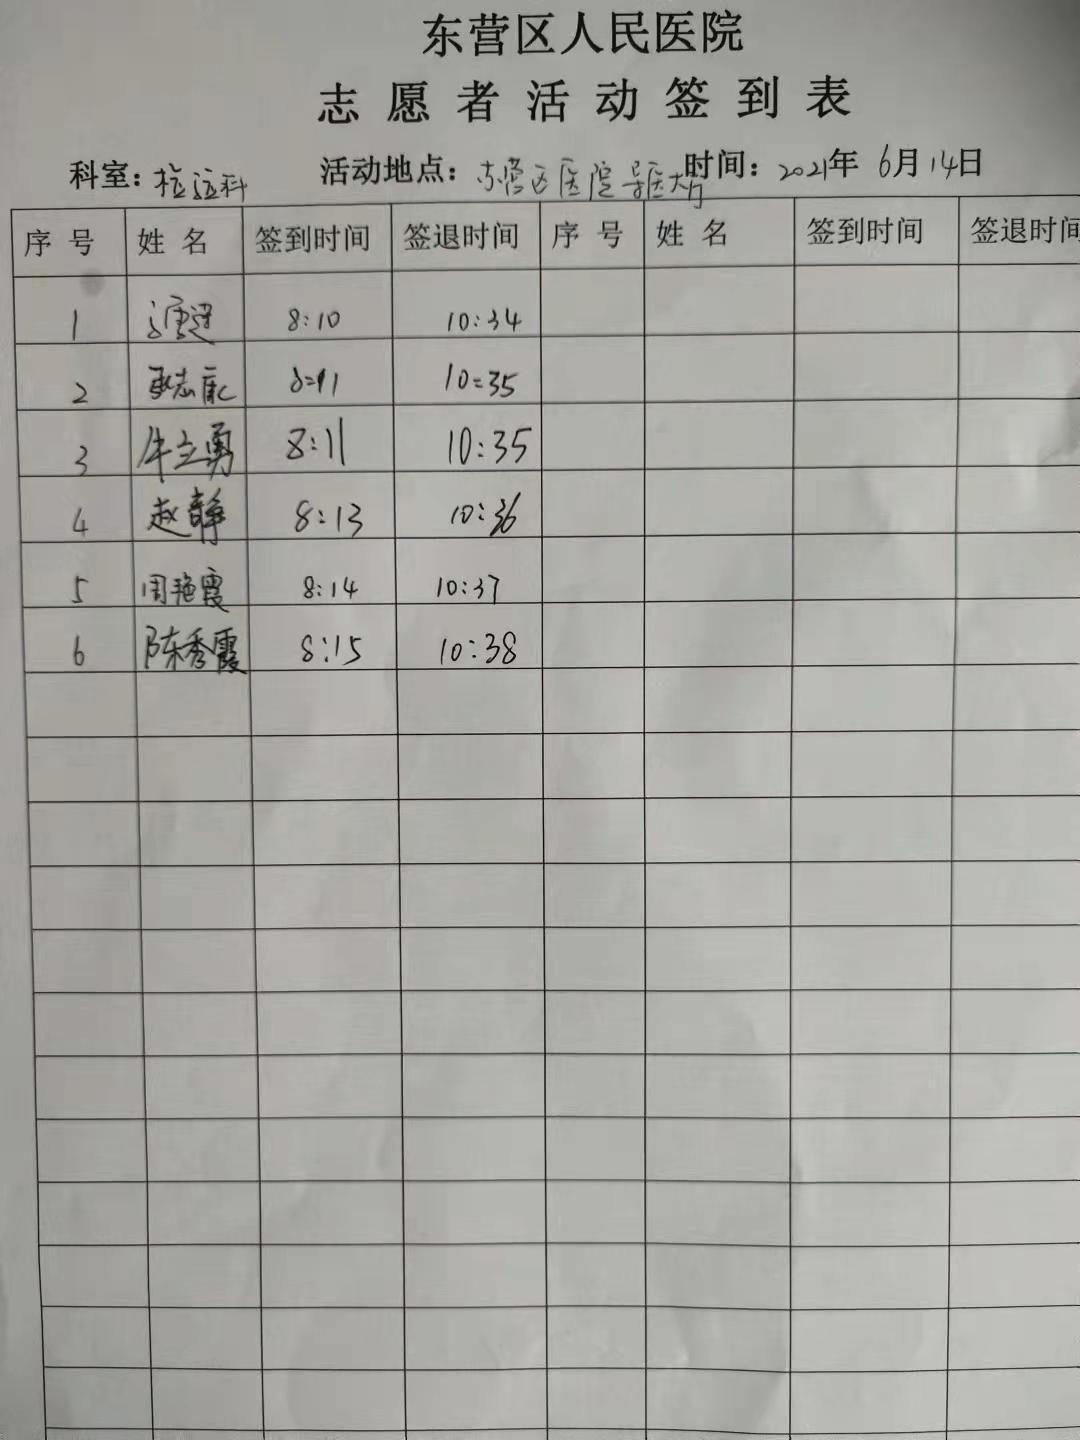 东营区人民医院
志愿者活动签到表
科室：检验科 活动地点：东营区医院导医大厅 时间：2021年 6月14日
序号 姓名 签到时间 签退时间 序号 姓名 签到时间 签退时间
1 8:10 10:34
2 志康 8:11 10:35
3 牛立勇 8:11 10:35
4 赵静 8:13 10:36
5 周艳霞 8:14 10:37
6 陈秀霞 8:15 10:38